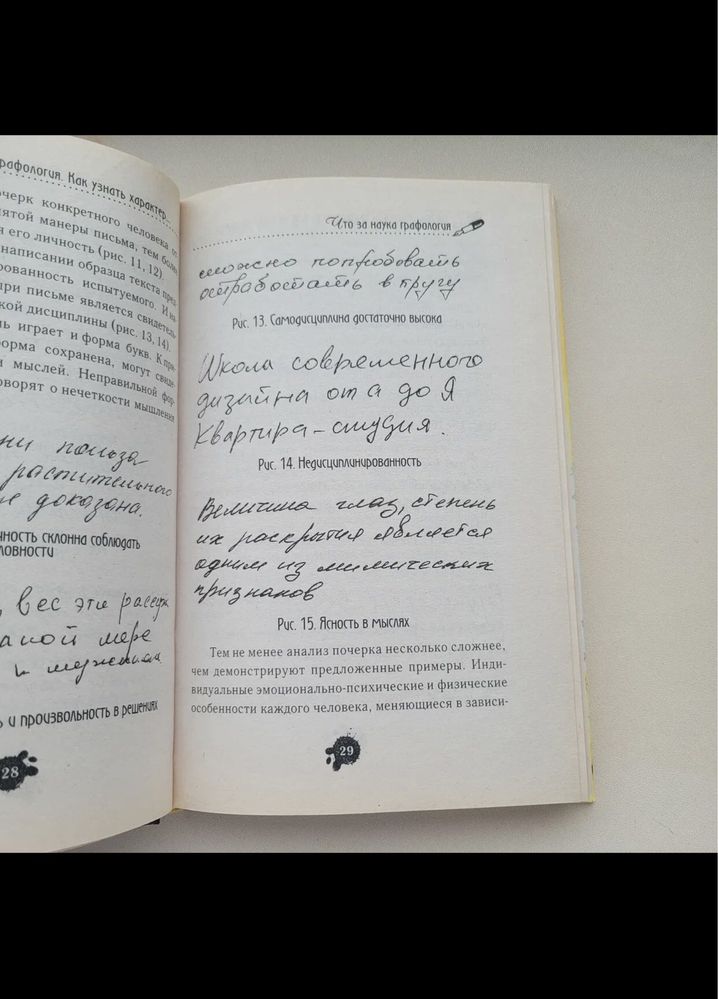 рафология. Как узнать характер...
очерк конкретного человека от
нятой манеры письма, тем более
я его личность (рис. 11, 12).
написании образца текста пред
рованность испытуемого. И на
при письме является свидетель
кой дисциплины (рис. 13, 14).
ль играет и форма букв. К при
орма сохранена, могут свиде
и мыслей. Неправильной фор
оворят о нечеткости мышления
ни польза
растительного
е доказана.
чность склонна соблюдать
ловности
, вес эти рассуж
аной мере
и
ь и произвольность в решениях
28
Что за наука графология
можно попробовать
отработать в кругу
Рис. 13. Самодисциплина достаточно высока
Школа современного
дизайна от а до Я
Квартира-студия.
Рис. 14. Недисциплинированность
Величина глаз, степень
их раскрытия является
одним из мимических
признаков
Рис. 15. Ясность в мыслях
Тем не менее анализ почерка несколько сложнее,
чем демонстрируют предложенные примеры. Инди-
видуальные эмоционально-психические и физические
особенности каждого человека, меняющиеся в зависи-
29